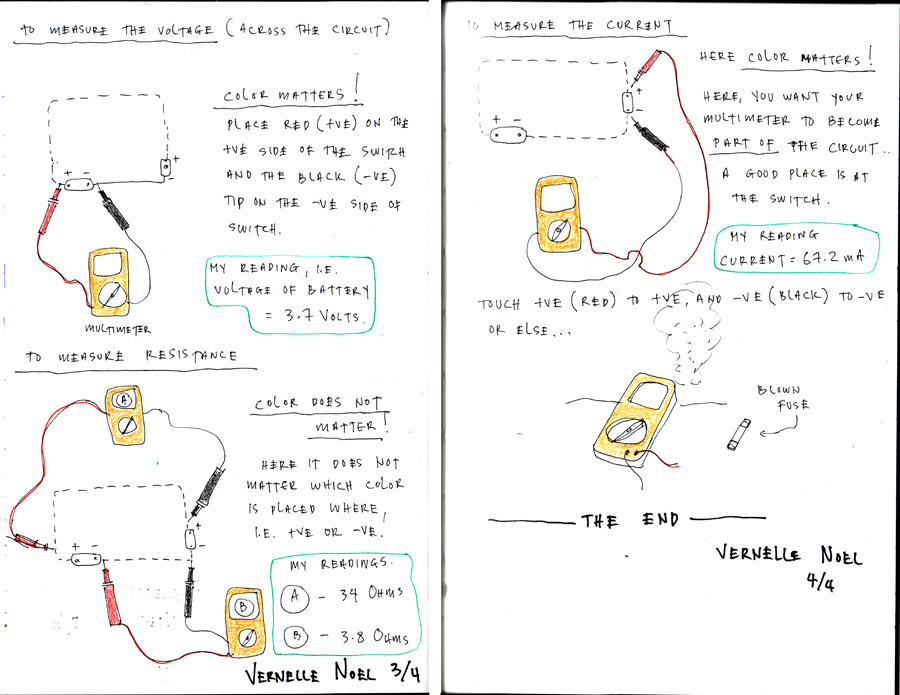 TO MEASURE THE VOLTAGE (ACROSS THE CIRCUIT)
COLOR MATTERS!
PLACE RED (+VE) ON THE
+VE SIDE OF THE SWITCH
AND THE BLACK (-VE)
TIP ON THE -VE SIDE OF
SWITCH.
+
-
+ -
MY READING, I.E.
VOLTAGE OF BATTERY
= 3.7 VOLTS.
MULTIMETER
TO MEASURE RESISTANCE
A
COLOR DOES NOT
MATTER!
HERE IT DOES NOT
MATTER WHICH COLOR
IS PLACED WHERE,
I.E. +VE OR -VE!
+
-
+ -
MY READINGS.
A - 34 OHMS
B - 3.8 OHMS
B
VERNELLE NOEL 3/4
TO MEASURE THE CURRENT
HERE COLOR MATTERS!
HERE, YOU WANT YOUR
MULTIMETER TO BECOME
PART OF THE CIRCUIT...
A GOOD PLACE IS AT
THE SWITCH.
+
-
+ -
MY READING
CURRENT = 67.2 mA
TOUCH +VE (RED) TO +VE, AND -VE (BLACK) TO -VE
OR ELSE...
BLOWN
FUSE
THE END
VERNELLE NOEL
4/4